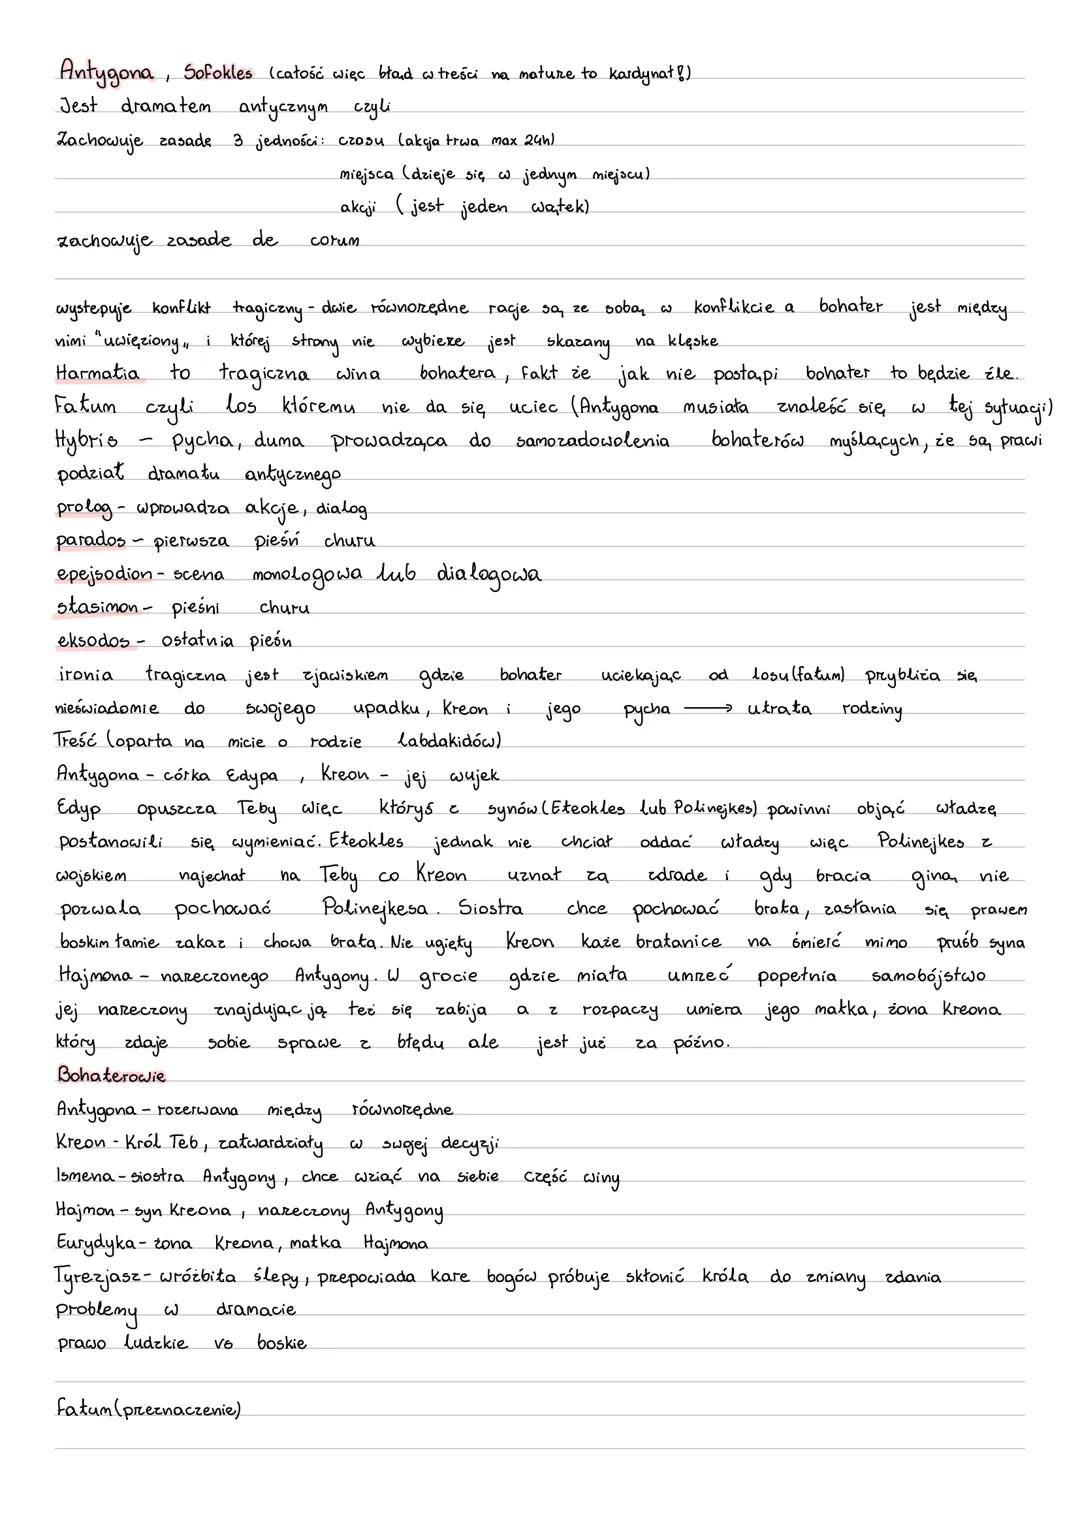 Antygona, Sofokles (całość więc błąd w treści na mature to kardynał!)
Jest dramatem antycznym czyli
Zachowuje zasadę 3 jedności: czasu (akcja trwa max 24h)
miejsca (dzieje się w jednym miejscu)
akcji (jest jeden wątek)
zachowuje zasade de corum
wystepuje konflikt tragiczny - dwie równorzędne racje są ze sobą w konflikcie a bohater jest między
nimi "uwięziony" i której strony nie wybierze jest skazany na klęske
Harmatia to tragiczna wina bohatera, fakt że jak nie postąpi bohater to będzie źle.
Fatum czyli los któremu nie da się uciec (Antygona musiała znaleść się w tej sytuacji)
Hybris - pycha, duma prowadząca do samozadowolenia bohaterów myślących, że są prawi
podział dramatu antycznego
prolog - wprowadza akcje, dialog
parados - pierwsza pieśń churu
epejsodion - scena monologowa lub dialogowa
stasimon - pieśni churu
eksodos - ostatnia pieśn
ironia tragiczna jest zjawiskiem gdzie bohater uciekając od losu (fatum) przybliża się
nieświadomie do swojego upadku, Kreon i jego pycha → utrata rodziny
Treść (oparta na micie o rodzie labdakidów)
Antygona - córka Edypa, Kreon - jej wujek
Edyp opuszcza Teby więc któryś z synów (Eteokles lub Polinejkes) powinni objąć władzę
postanowili się wymieniać. Eteokles jednak nie chciał oddać władzy więc Polinejkes z
wojskiem najechał na Teby co Kreon uznał za zdrade i gdy bracia giną nie
pozwala pochować Polinejkesa. Siostra chce pochować brata, zasłania się prawem
boskim łamie zakaz i chowa brata. Nie ugięty Kreon każe bratanice na śmierć mimo pruśb syna
Hajmona - narzeczonego Antygony. W grocie gdzie miała umrzeć popełnia samobójstwo
jej narzeczony znajdując ją też się zabija a z rozpaczy umiera jego matka, żona Kreona
który zdaje sobie sprawe z błędu ale jest już za późno.
Bohaterowie
Antygona - rozerwana między równorzędne
Kreon - Król Teb, zatwardziały w swojej decyzji
Ismena - siostra Antygony, chce wziąć na siebie część winy
Hajmon - syn Kreona, narzeczony Antygony
Eurydyka - żona Kreona, matka Hajmona
Tyrezjasz - wróżbita ślepy, przepowiada kare bogów próbuje skłonić króla do zmiany zdania
problemy w dramacie
prawo ludzkie vs boskie
fatum (przeznaczenie)